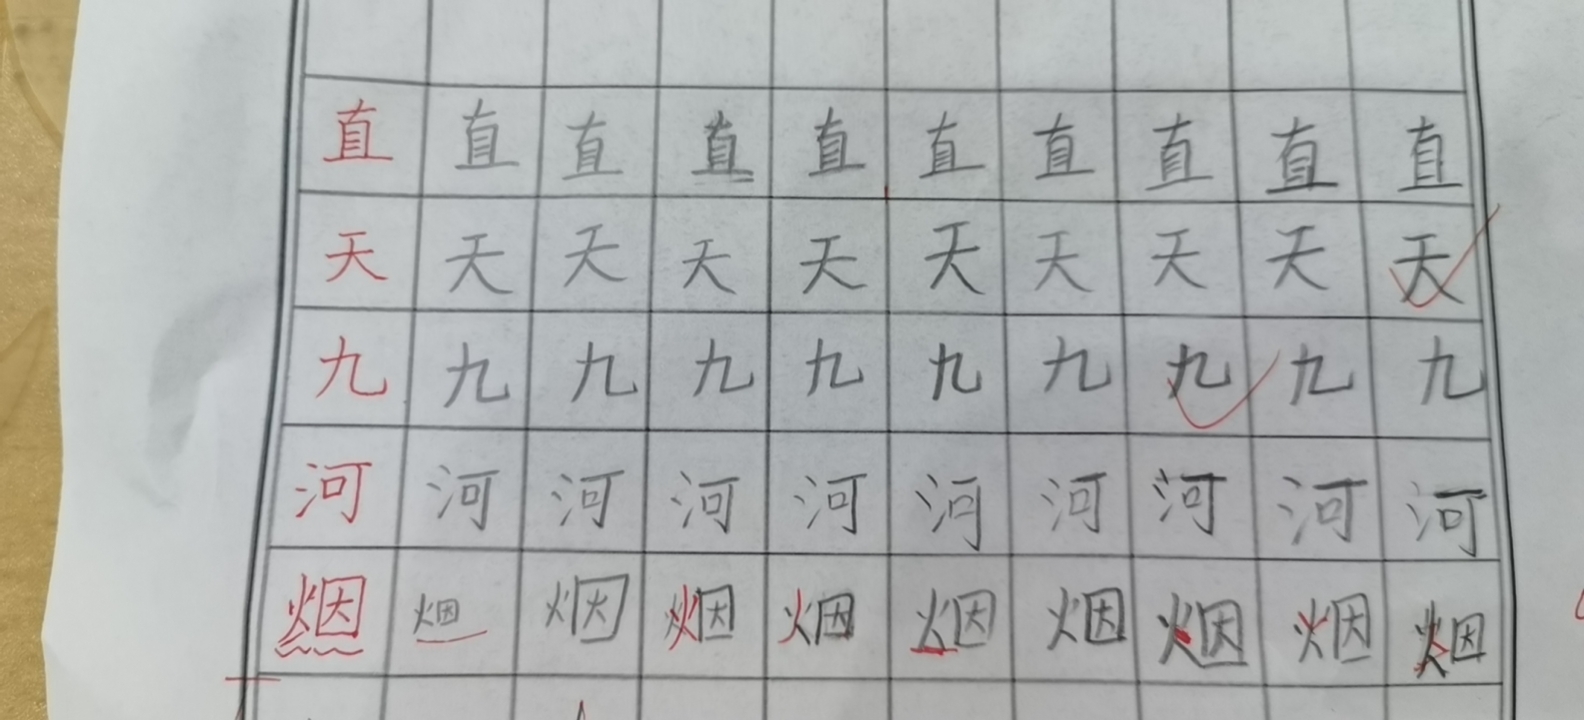 直直直直直直直直直直
天天天天天天天天天天
九九九九九九九九九九
河河河河河河河河河河
烟烟烟烟烟烟烟烟烟烟